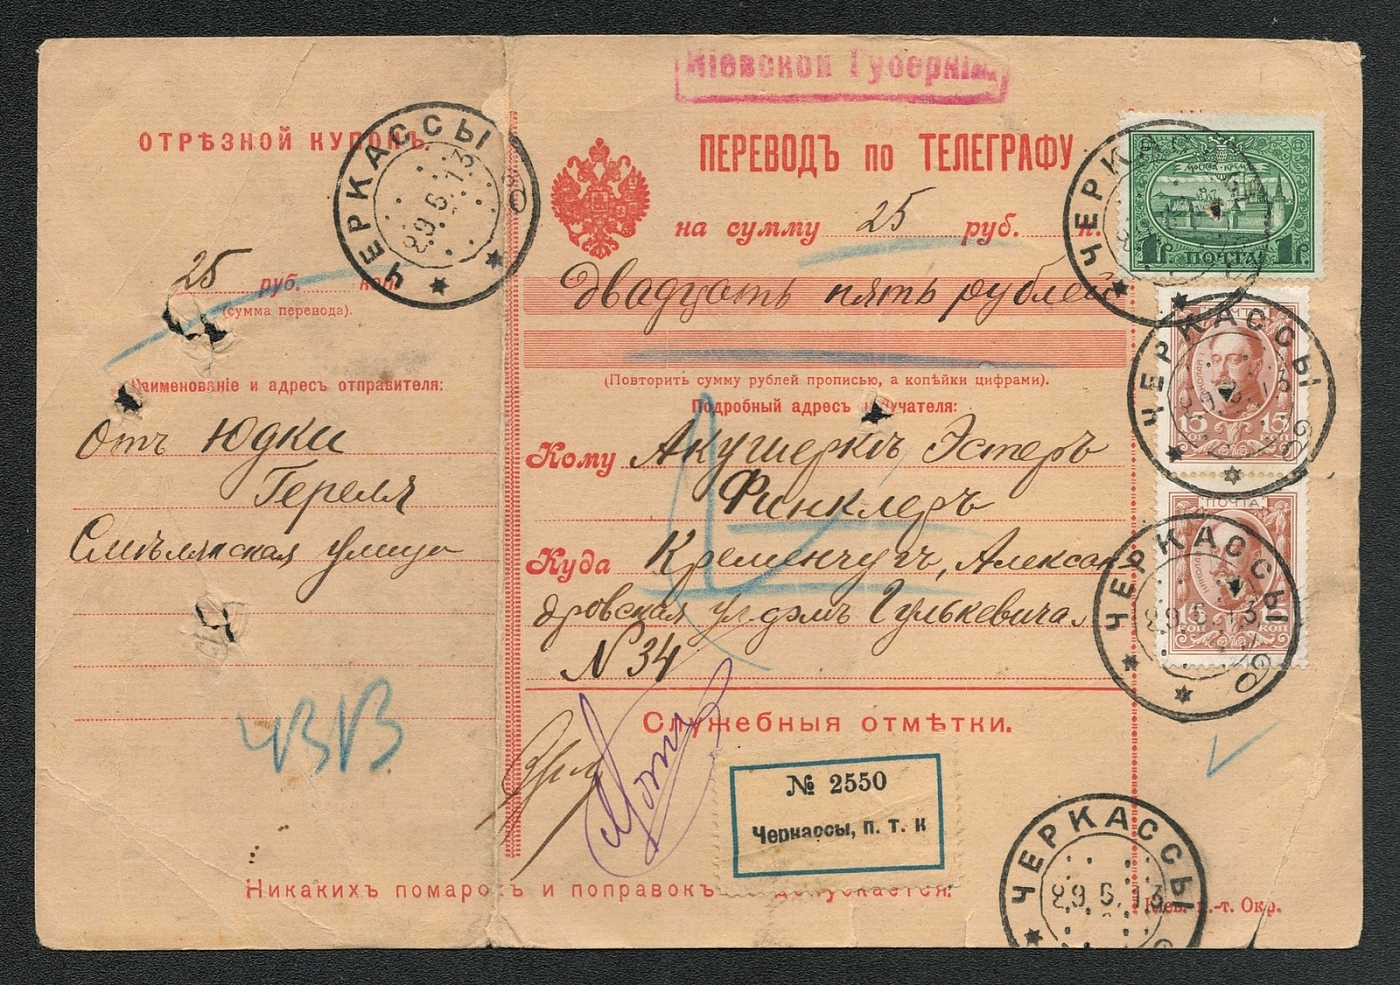 Кіевской Губерніи.
ОТРѢЗНОЙ КУПОНЪ.
25 руб. коп.
(сумма перевода).
Наименованіе и адресъ отправителя:
Отъ Юдки
Гереля
Смѣлянская улица
ЧВВ
ПЕРЕВОДЪ по ТЕЛЕГРАФУ
на сумму 25 руб. к.
Двадцать пять рублей
(Повторить сумму рублей прописью, а копѣйки цифрами).
Подробный адресъ получателя:
Кому Акушеркѣ Эстеръ
Финклеръ
Куда Кременчугъ, Алексан
дровская ул домъ Гулькевича
N 34
Служебныя отмѣтки.
№ 2550
Черкассы, п. т. к
Никакихъ помарокъ и поправокъ не допускается.
Кіев. п.-т. Окр.
ЧЕРКАССЫ
29.6.13
ЧЕРКАССЫ
МОСКВА-КРЕМЛЬ
1р 1р
ПОЧТА
ЧЕРКАССЫ
ПОЧТА
15 15
КОП КОП
ЧЕРКАССЫ
29.6.13
ПОЧТА
15 15
КОП КОП
ЧЕРКАССЫ
29.6.13